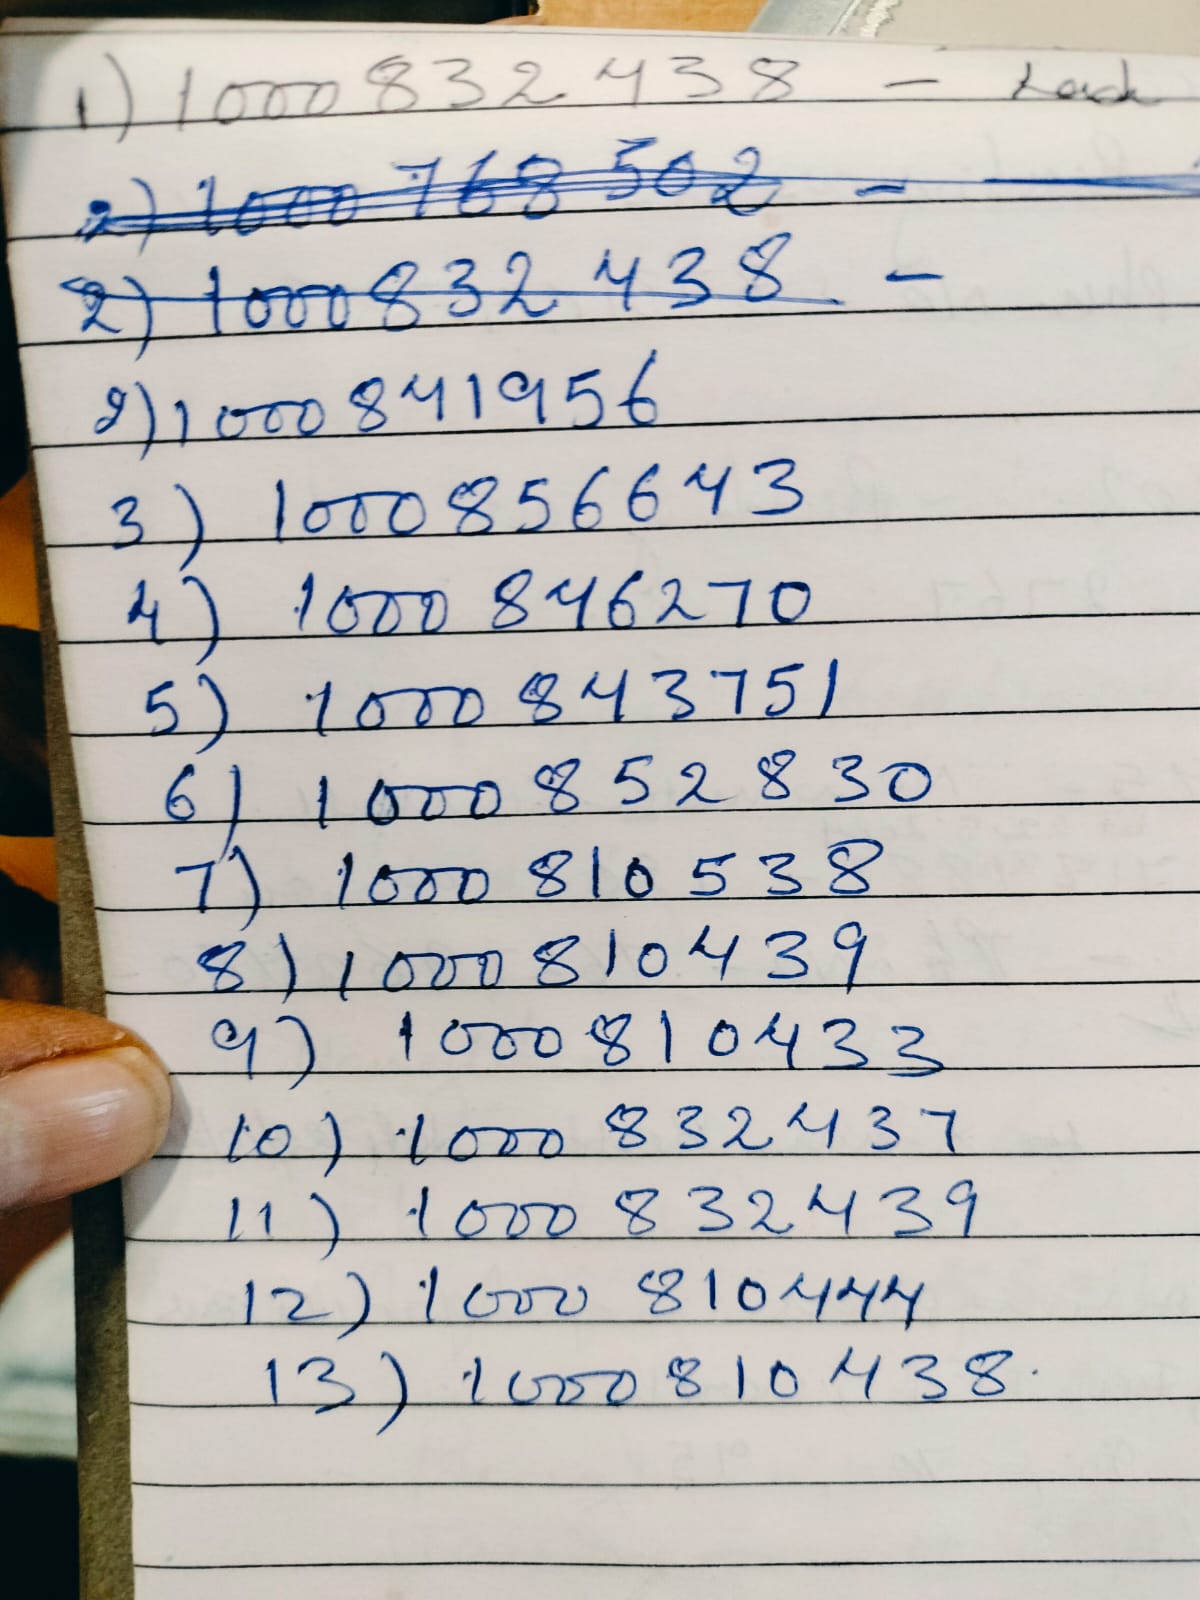 1) 1000832438 -
2) 1000768502 -
2) 1000832438 -
2) 1000841956
3) 1000856643
4) 1000846270
5) 1000843751
6) 1000852830
7) 1000810538
8) 1000810439
9) 1000810433
10) 1000832437
11) 1000832439
12) 1000810444
13) 1000810438.